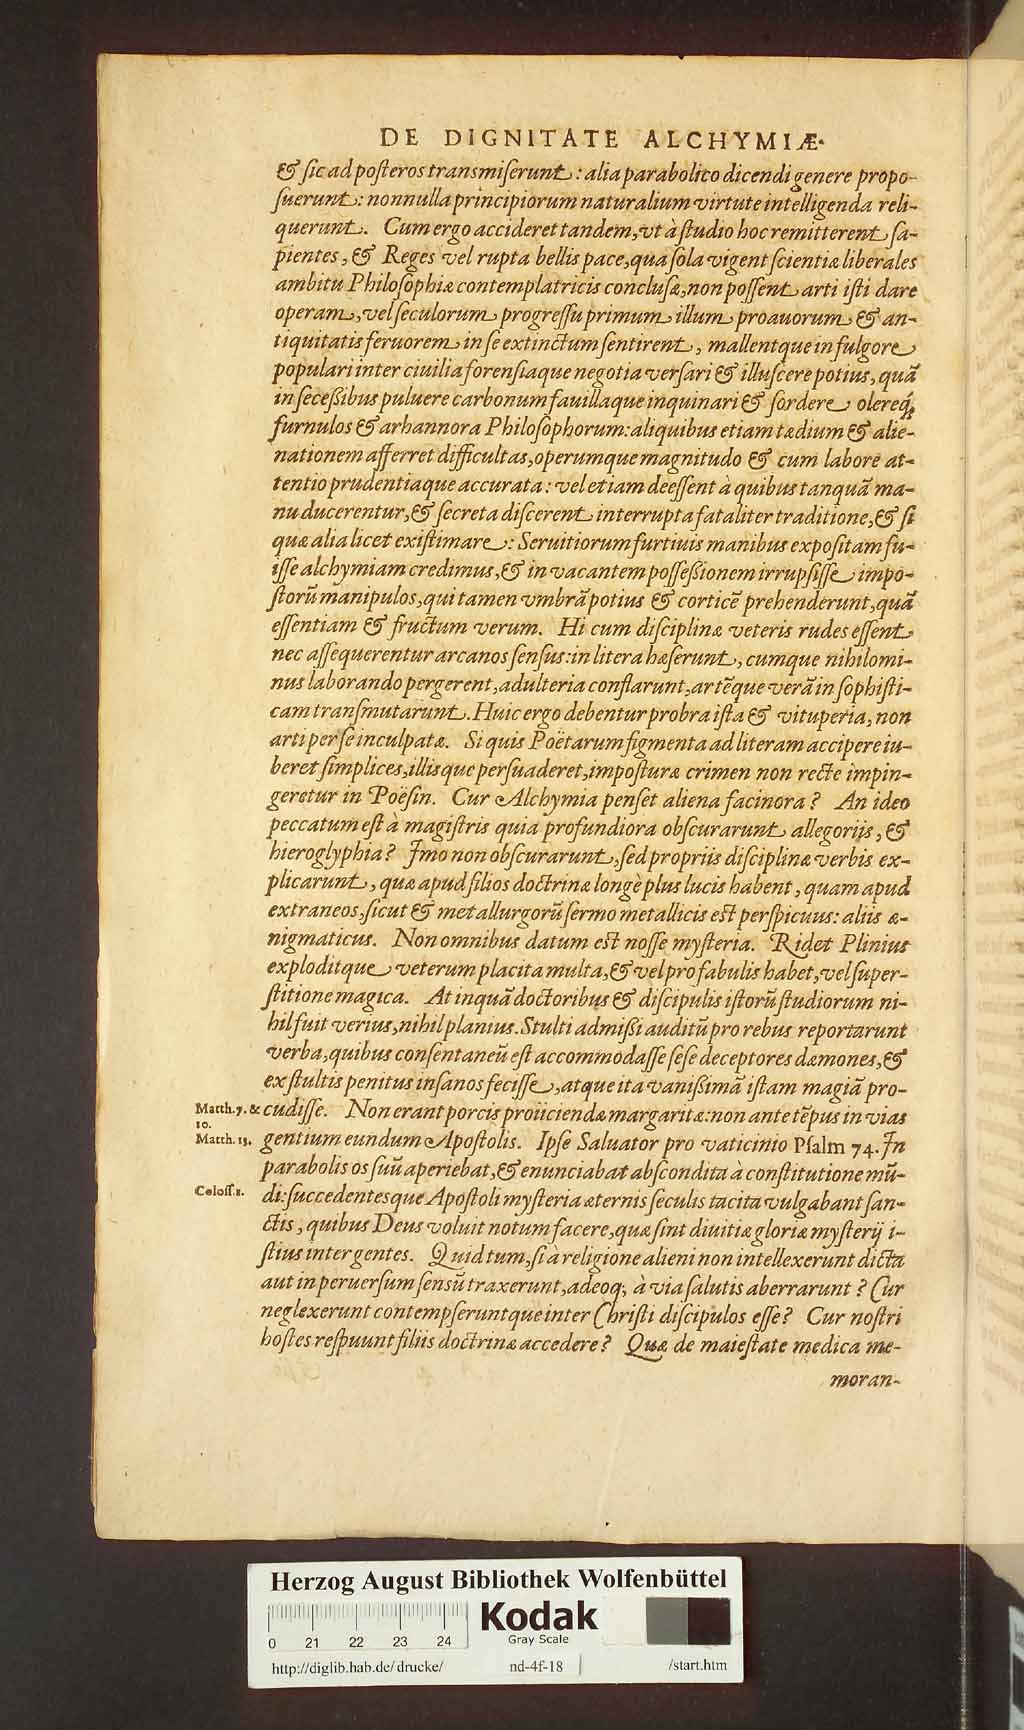 DE DIGNITATE ALCHYMIÆ.
& ſic ad poſteros transmiſerunt: alia parabolico dicendi genere propo-
ſuerunt: nonnulla principiorum naturalium virtute intelligenda reli-
querunt. Cum ergo accideret tandem, vt à ſtudio hoc remitterent ſa-
pientes, & Reges vel rupta bellis pace, qua ſola vigent ſcientiæ liberales
ambitu Philoſophiæ contemplatricis concluſæ, non poſſent arti iſti dare
operam, vel ſeculorum progreſſu primum illum proauorum & an-
tiquitatis feruorem in ſe extinctum ſentirent, mallentque in fulgore
populari inter ciuilia forenſiaque negotia verſari & illuſcere potius, quã
in ſeceßibus puluere carbonum fauillaque inquinari & ſordere olereq́;
furnulos & arhannora Philoſophorum: aliquibus etiam tædium & alie-
nationem afferret difficultas, operumque magnitudo & cum labore at-
tentio prudentiaque accurata: vel etiam deeſſent à quibus tanquã ma-
nu ducerentur, & ſecreta diſcerent interrupta fataliter traditione, & ſi
quæ alia licet exiſtimare: Seruitiorum furtiuis manibus expoſitam fu-
iſſe alchymiam credimus, & in vacantem poſſeßionem irrupſiſſe impo-
ſtorũ manipulos, qui tamen vmbrã potius & corticẽ prehenderunt, quã
eſſentiam & fructum verum. Hi cum diſciplinæ veteris rudes eſſent
nec aſſequerentur arcanos ſenſus: in litera hæſerunt, cumque nihilomi-
nus laborando pergerent, adulteria conflarunt, artẽque verã in ſophiſti-
cam tranſmutarunt. Huic ergo debentur probra iſta & vituperia, non
arti per ſe inculpatæ. Si quis Poëtarum figmenta ad literam accipere iu-
beret ſimplices, illisque perſuaderet, impoſturæ crimen non recte impin-
geretur in Poëſin. Cur Alchymia penſet aliena facinora? An ideo
peccatum eſt à magiſtris quia profundiora obſcurarunt allegoriis, &
hieroglyphia? Imo non obſcurarunt, ſed propriis diſciplinæ verbis ex-
plicarunt, quæ apud filios doctrinæ longè plus lucis habent, quam apud
extraneos, ſicut & metallurgorũ ſermo metallicis eſt perſpicuus: aliis æ-
nigmaticus. Non omnibus datum eſt noſſe myſteria. Ridet Plinius
exploditque veterum placita multa, & vel pro fabulis habet, vel ſuper-
ſtitione magica. At inquã doctoribus & diſcipulis iſtorũ ſtudiorum ni-
hil fuit verius, nihil planius. Stulti admißi auditũ pro rebus reportarunt
verba, quibus conſentaneũ eſt accommodaſſe ſeſe deceptores dæmones, &
ex ſtultis penitus inſanos feciſſe, atque ita vanißimã iſtam magiã pro-
Matth. 7. & 10.
cudiſſe. Non erant porcis proiiciendæ margaritæ: non ante tẽpus in vias
Matth. 13.
gentium eundum Apoſtolis. Ipſe Saluator pro vaticinio Pſalm 74. In
parabolis os ſuũ aperiebat, & enunciabat abſcondita à conſtitutione mũ-
Coloſſ. 1.
di: ſuccedentesque Apoſtoli myſteria æternis ſeculis tacita vulgabant ſan-
ctis, quibus Deus voluit notum facere, quæ ſint diuitiæ gloriæ myſterij i-
ſtius inter gentes. Quid tum, ſi à religione alieni non intellexerunt dicta
aut in peruerſum ſenſũ traxerunt, adeoq; à via ſalutis aberrarunt? Cur
neglexerunt contempſeruntque inter Chriſti diſcipulos eſſe? Cur noſtri
hoſtes reſpuunt filiis doctrinæ accedere? Quæ de maieſtate medica me-
moran-
Herzog August Bibliothek Wolfenbüttel
Kodak
Gray Scale
0 21 22 23 24
http://diglib.hab.de/drucke/ nd-4f-18 /start.htm